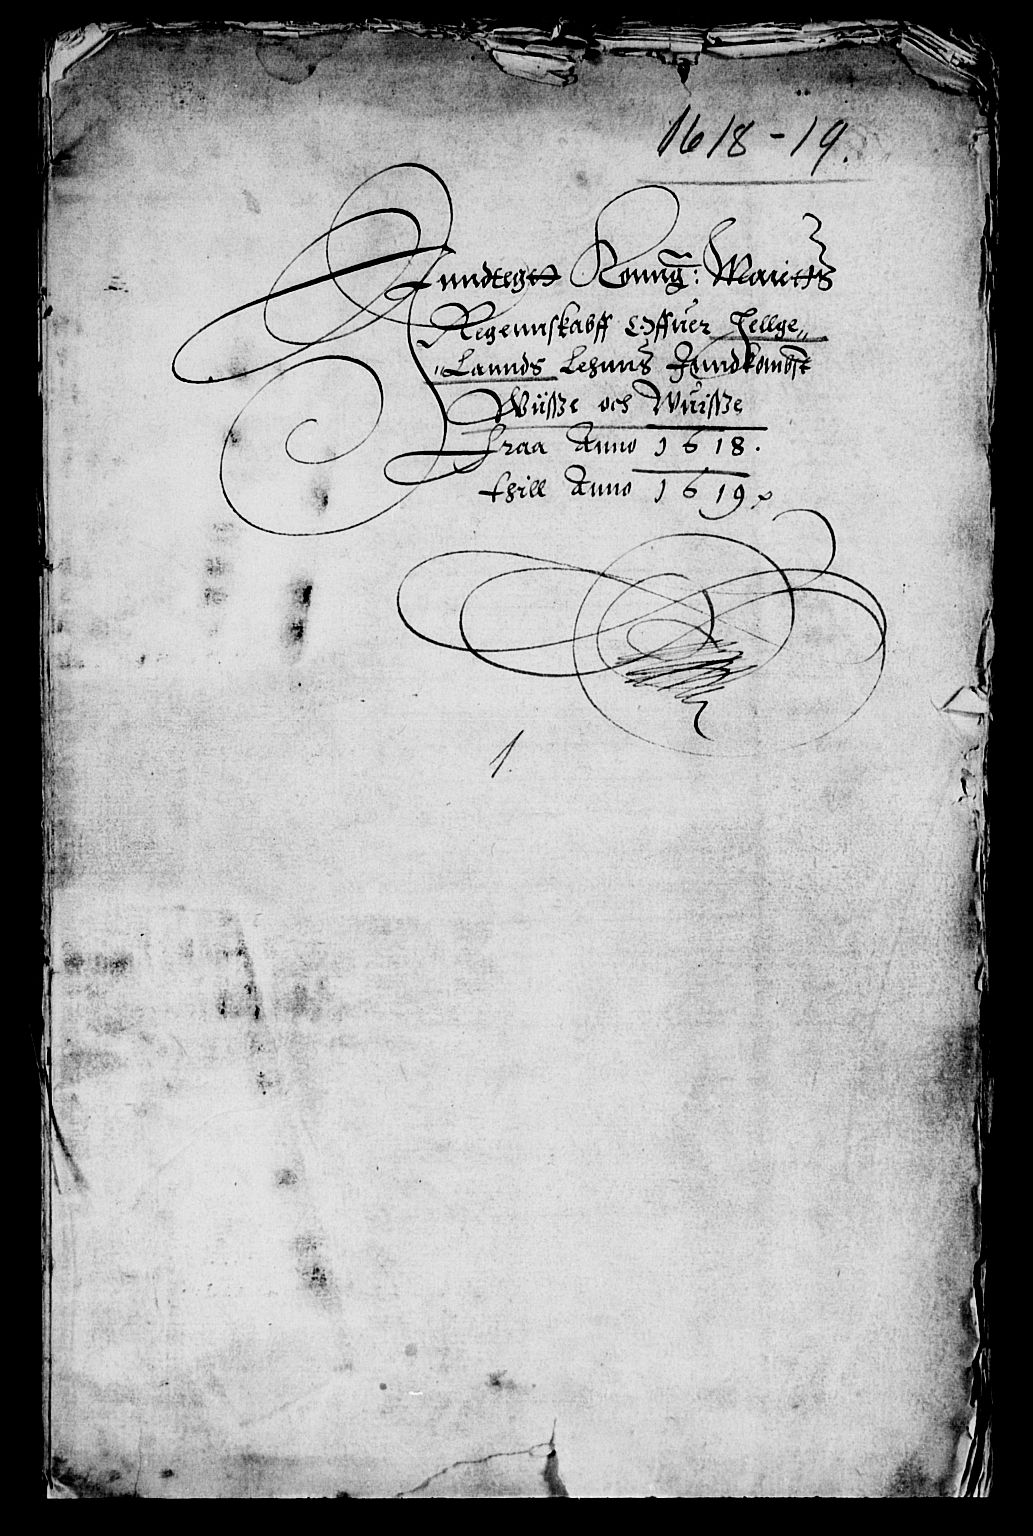 1618-19.
Inndteget Konng: Maietts
Regennskabff Offuer Hellge„
„Lannds Lehnns Jnndkombst
Wüsße och Wuisße
Fraa Anno 1618.
thill Anno 1619.
1.